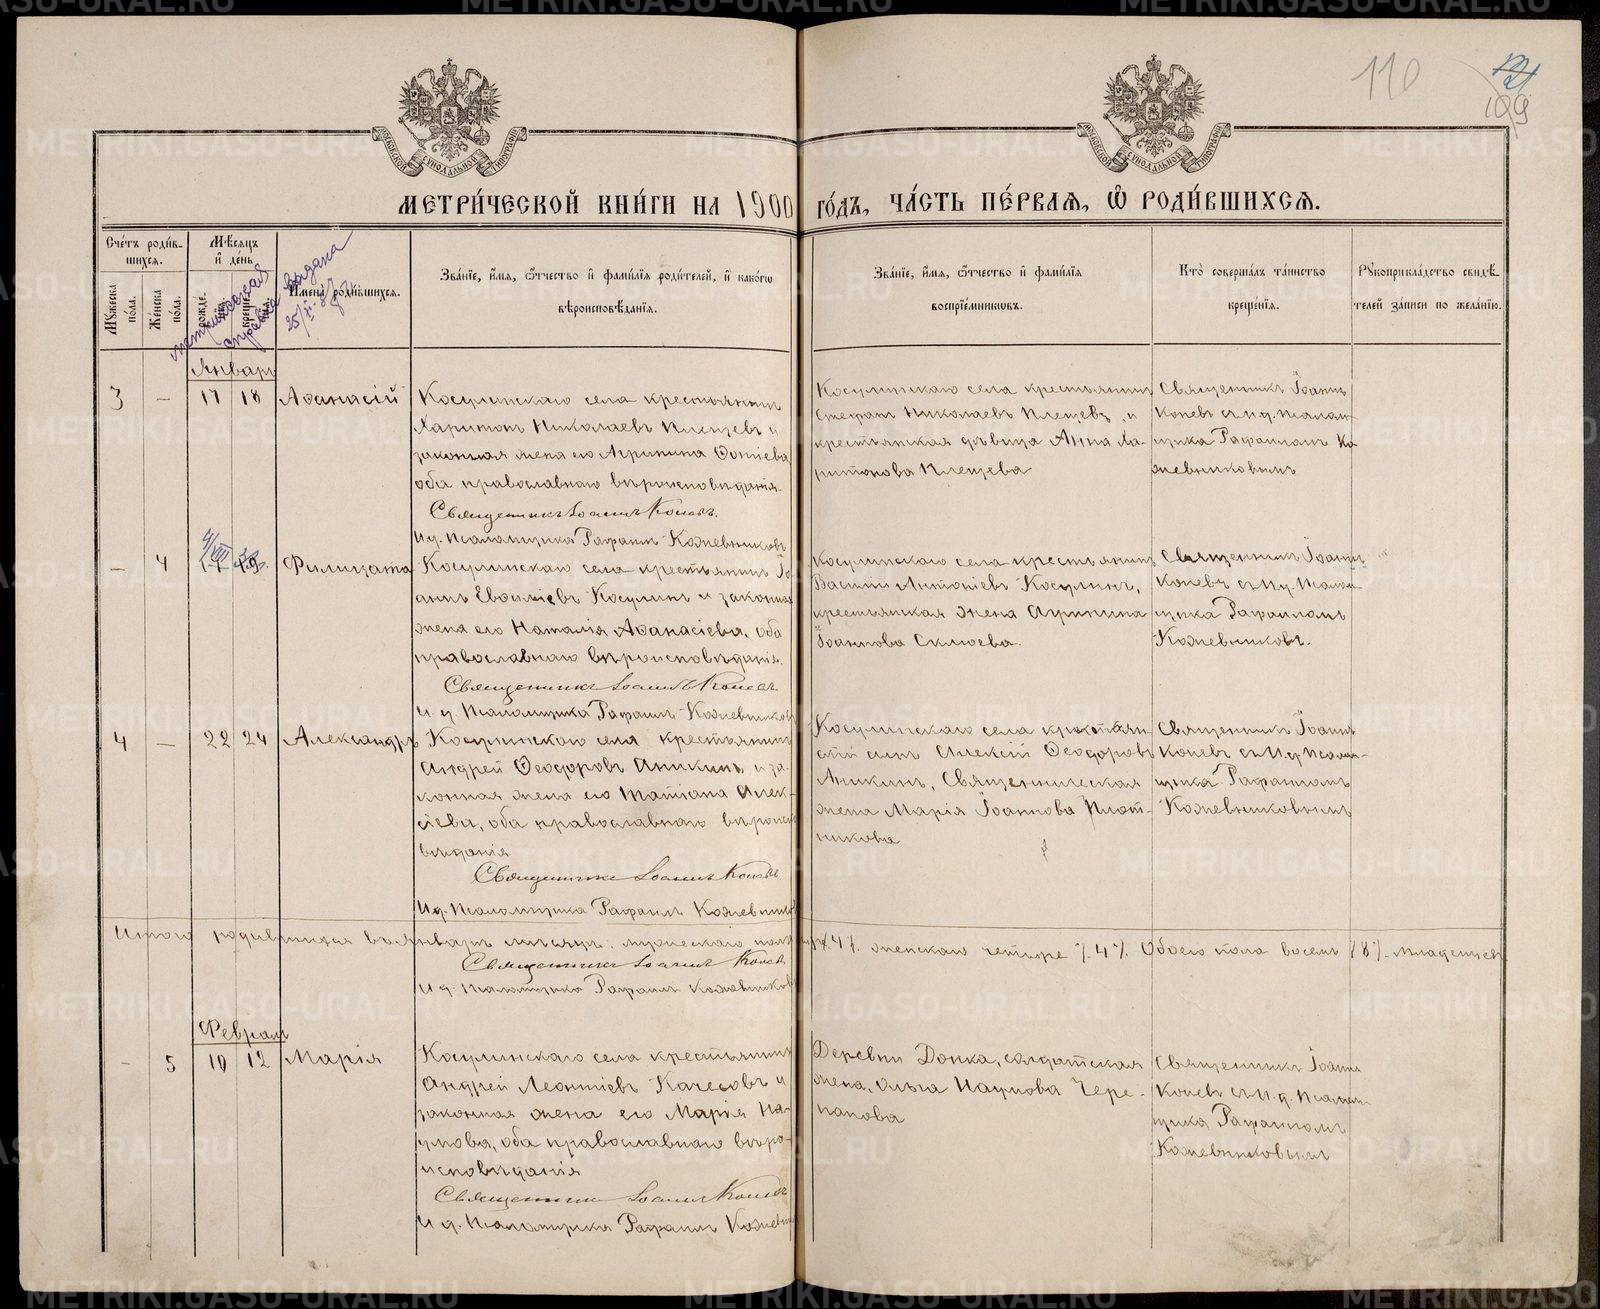 110
109
МОСКОВСКОЙ СУНОДАЛЬНОЙ ТИПОГРАФІИ
МОСКОВСКОЙ СУНОДАЛЬНОЙ ТИПОГРАФІИ
МЕТРИ́ЧЕСКОЙ КНИ́ГИ НА 1900 ГО́ДЪ, ЧА́СТЬ ПЕ́РВАѦ, Ѡ РОДИ́ВШИХСѦ.
Сче́тъ роди́в-
шихсѧ.
Мꙋ́жеска по́ла.
Же́нска по́ла.
Мѣ́сѧцъ и́ де́нь.
рожде́-
креще́-
Имена̀ роди́вшихсѧ.
Зва́нїе, и́мѧ, ѻ́тчество и́ фами́лїѧ роди́телей, и́ како́гѡ
вѣроисповѣ́данїѧ.
Зва́нїе, и́мѧ, ѻ́тчество и́ фами́лїѧ
воспрїе́мникѡвъ.
Кто̀ соверша́лъ та́инство
креще́нїѧ.
Рꙋкоприкла́дство свидѣ́-
телей за́писи по жела́нїю.
метрическая справка выдана
Январь
3 — 17 18 Аѳанасій
Косулинскаго села крестьянинъ
Харитонъ Николаевъ Плещевъ и
законная жена его Агрипина Фотіева,
оба православнаго вѣроисповѣданія.
Священникъ Іоаннъ Коневъ.
И.д. Псаломщика Рафаилъ Кожевниковъ
Косулинскаго села крестьянинъ
Стефанъ Николаевъ Плещевъ и
крестьянская дѣвица Анна Ха-
ритонова Плещева
Священникъ Іоаннъ
Коневъ съ и.д. псалом-
щика Рафаиломъ Ко-
жевниковымъ
— 4 Филицата
Косулинскаго села крестьянинъ Іо-
аннъ Евѳиміевъ Косулинъ и законная
жена его Наталія Аѳанасіева, оба
православнаго вѣроисповѣданія.
Священникъ Іоаннъ Коневъ
И.д. Псаломщика Рафаилъ Кожевниковъ
Косулинскаго села крестьянинъ
Василій Антоніевъ Косулинъ,
крестьянская жена Агрипина
Іоаннова Склюева.
Священникъ Іоаннъ
Коневъ съ И.д. Псалом-
щика Рафаиломъ
Кожевниковъ.
4 — 22 24 Александръ
Косулинскаго села крестьянинъ
Андрей Ѳеодоровъ Аникинъ и за-
конная жена его Татіана Алек-
сіева, оба православнаго вѣроиспо-
вѣданія
Священникъ Іоаннъ Коневъ
И.д. Псаломщика Рафаилъ Кожевниковъ
Косулинскаго села крестьян-
скій сынъ Алексій Ѳеодоровъ
Аникинъ, Священническая
жена Марія Іоаннова Плот-
никова
Священникъ Іоаннъ
Коневъ съ И.д. Псалом-
щика Рафаиломъ
Кожевниковымъ
Итого родившихся въ январѣ мѣсяцѣ: мужескаго пола /4/. женскаго четыре /4/. Обоего пола восемь /8/ младенцевъ
Священникъ Іоаннъ Коневъ
И.д. Псаломщика Рафаилъ Кожевниковъ
Февраль
— 5 10 12 Марія
Косулинскаго села крестьянинъ
Андрей Леонтіевъ Качесовъ и
законная жена его Марія На-
умова, оба православнаго вѣро-
исповѣданія
Священникъ Іоаннъ Коневъ
И.д. Псаломщика Рафаилъ Кожевни
Деревни Донка, солдатская
жена, Ольга Наумова Чере-
панова
Священникъ Іоаннъ
Коневъ съ И.д. Псалом-
щика Рафаиломъ
Кожевниковымъ
METRIKI.GASO-URAL.RU